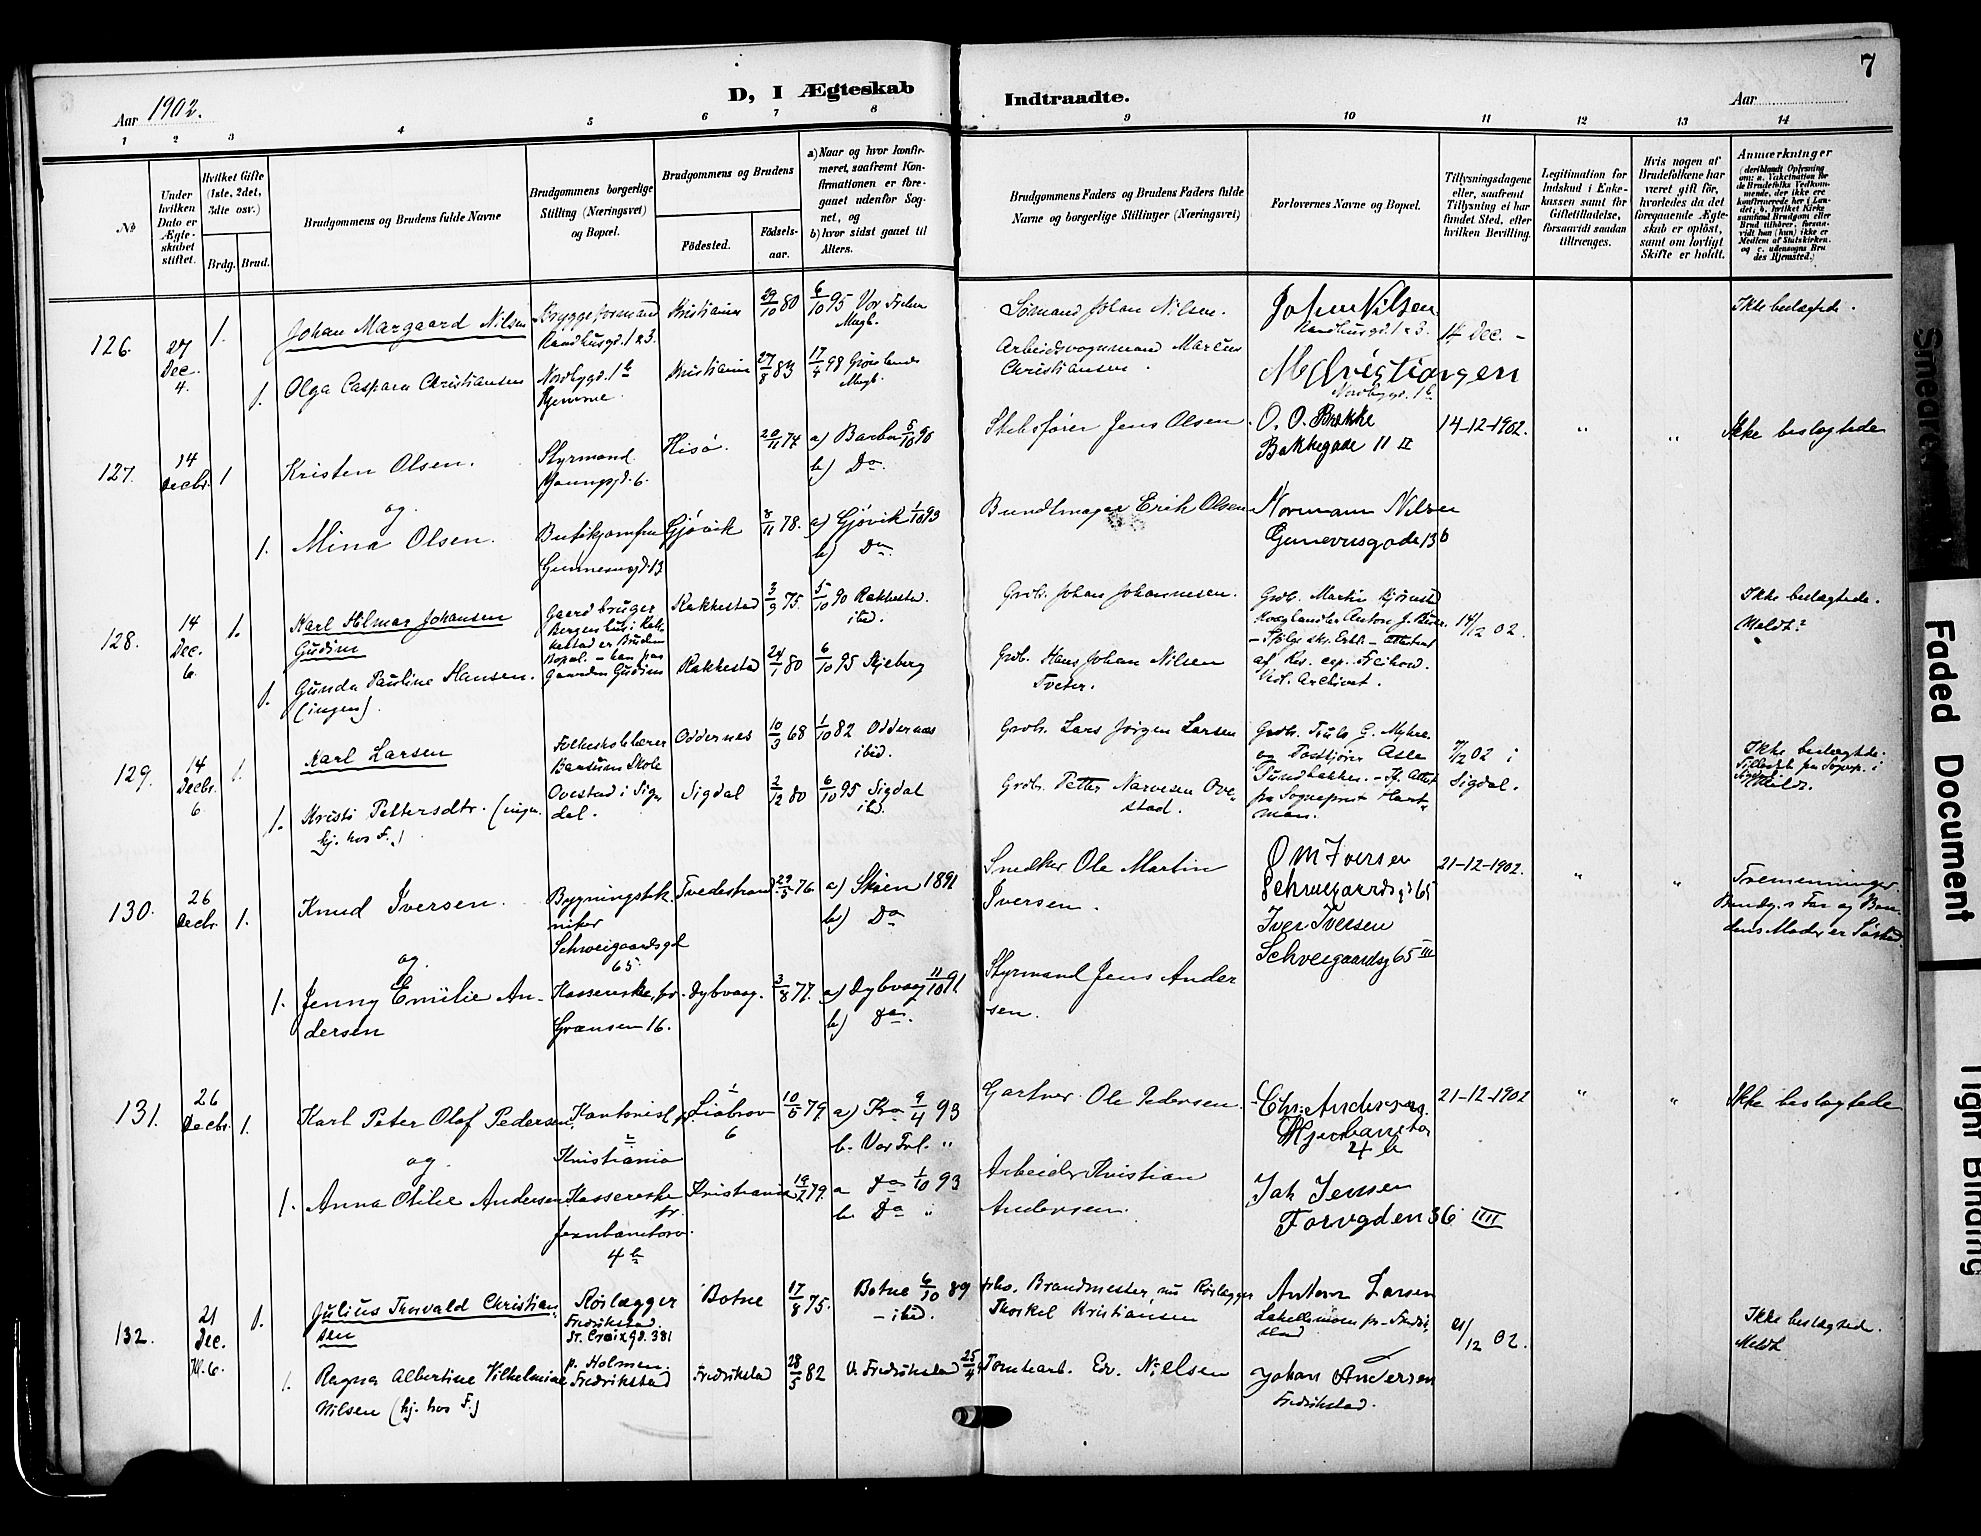 7
Aar 1902.
D, I Ægteskab
Indtraadte.
Aar
1 2 3 4 5 6 7 8 9 10 11 12 13 14
No
Under hvilken Dato er Ægteskabet stiftet.
Hvilket Gifte (1ste, 2det, 3dte osv.)
Brdg. Brud.
Brudgommens og Brudens fulde Navne
Brudgommens borgerlige Stilling (Næringsvei) og Bopæl.
Brudgommens og Brudens
Fødested.
Fødselsaar.
a) Naar og hvor konfirmeret, saafremt Konfirmationen er foregaaet udenfor Sognet, og
b) hvor sidst gaaet til Alters.
Brudgommens Faders og Brudens Faders fulde Navne og borgerlige Stillinger (Næringsvei)
Forlovernes Navne og Bopæl.
Tillysningsdagene eller, saafremt Tillysning ei har fundet Sted, efter hvilken Bevilling.
Legitimation for Indskud i Enkekassen samt for Giftetilladelse, forsaavidt saadan tiltrænges.
Hvis nogen af Brudefolkene har været gift før, hvorledes da det foregaaende Ægteskab er opløst, samt om lovligt Skifte er holdt.
Anmærkninger
(deriblandt Oplysning om: a. Vakcination for de Brudefolks Vedkommende, der ikke ere konfirmerede her i Landet; b. hvilket Kirkesamfund Brudgom eller Brud tilhører, forsaavidt han (hun) ikke er Medlem af Statskirken. og c. udensogns Brudes Hjemsted.)
126.
27 Dec. 4.
1.
Johan Margaard Nilsen
Bryggeformand
Raadhusgd. 1 & 3.
Kristiania
29/10 80
6/10 95 Vor Frelser Mgb.
Sømand Johan Nilsen.
Johan Nilsen
Raadhusgd. 1 & 3.
14 Dec. -
Ikke beslægtede.
1.
Olga Caspara Christiansen
Nordbygd. 1 b
Hjemme.
Kristiania
27/8 83
17/4 98 Grønlands Mgb.
Arbeidsvognmand Marcus Christiansen.
M Christiansen
Nordbygd. 1 b
127.
14 Decbr.
1
Kristen Olsen.
og
Styrmand
Youngsgd. 6.
Hisø.
20/11 74
a) Barbu 5/10 90
b) Do.
Skibsfører Jens Olsen.
O. O. Bakke
Bakkegade 11 II
14-12-1902.
"
"
Ikke beslægtede
1.
Mina Olsen.
Butikjomfru
Gjøvik
8/11 78.
a) Gjøvik 1/10 93
b) Do.
Bundtmager Erik Olsen
Normann Nilsen
128.
14 Dec. 6.
1.
Karl Hilmar Johansen Gudim
Gaardbruger
Rakkestad
3/9 75.
5/10 90 Rakkestad. ibid.
Grdb. Johan Johannesen.
Grdb. Martin
14/12 02.
Ikke beslægtede.
Meldt.
1.
Gunda Pauline Hansen.
(ingen).
Rakkestad
24/1 80
6/10 95 Skjeberg
Grdb. Hans Johan Nilsen Tveter.
129.
14 Decbr. 6
1.
Karl Larsen
Folkeskolelærer
Bærums Skole
Oddernes
10/3 68
1/10 82 Oddernes ibid.
Grdb. Lars Jørgen Larsen
Grdb. Truls G. Myhre
7/12 02 i Sigdal.
Ikke beslægtede.
Meldt.
1.
Kristi Pettersdtr. (ingen.
hj. hos F.)
Ovestad i Sigdal.
Sigdal
2/12 80
6/10 95 Sigdal ibid.
Grdb. Petter Narvesen Ovestad.
130.
26 Decbr.
1.
Knud Iversen.
og
Bygningstekniker
Schweigaardsgd 65.
Tvedestrand
29/5 76
a) Skien 1891
b) Do
Snedker Ole Martin Iversen.
O M Iversen
Schweigaardsgd 65
Iver Iversen
Schveigaardsg 65 III
21-12-1902.
"
"
Tremenninger
Brudg.s Far og Brudens Moder er Søskend.
1.
Jenny Emilie Andersen
Kassererske, pr.
Grænsen 16.
Dybvaag.
3/8 77.
a) Dybvaag 11/10 91
b) Do.
Styrmand Jens Andersen.
131.
26 Decbr.
1.
Karl Peter Olaf Pedersen,
og
Kontorist,
Kristiania
Liabro
10/5 79.
a) Kra 9/4 93
b. Vor Frl. "
Gartner Ole Pedersen.
Chr. Andersen.
Jernbanetor 4 b
21-12-1902
"
"
Ikke beslægtede
1.
Anna Otilie Andersen
Kassererske
Jernbanetorv. 4 b
Kristiania
19/2 79.
a Do 1/10 93
b Do "
Arbeider Kristian Andersen.
Joh Jensen
Torvgden 36 IIII
132.
21 Dec. Kl. 6.
1.
Julius Thorvald Christiansen
Rørlægger
Fredrikstad.
St. Croixgd. 381
Botne
17/8 75.
Botne 6/10 89
- ibid.
fhv. Brandmester, nu Rørlægger
Thorkel Kristiansen
Anton Larsen
21/12 02.
Ikke beslægtede.
Meldt
1.
Ragna Albertine Vilhelmine Nilsen (hj. hos F.)
p. Holmen.
Fredrikstad
Fredrikstad
28/5 82
V. Fredrikstad 25/4
Tomtearb. Edv. Nielsen
Johan Andersen
Fredrikstad.
Smeared
Faded Document
Tight Binding